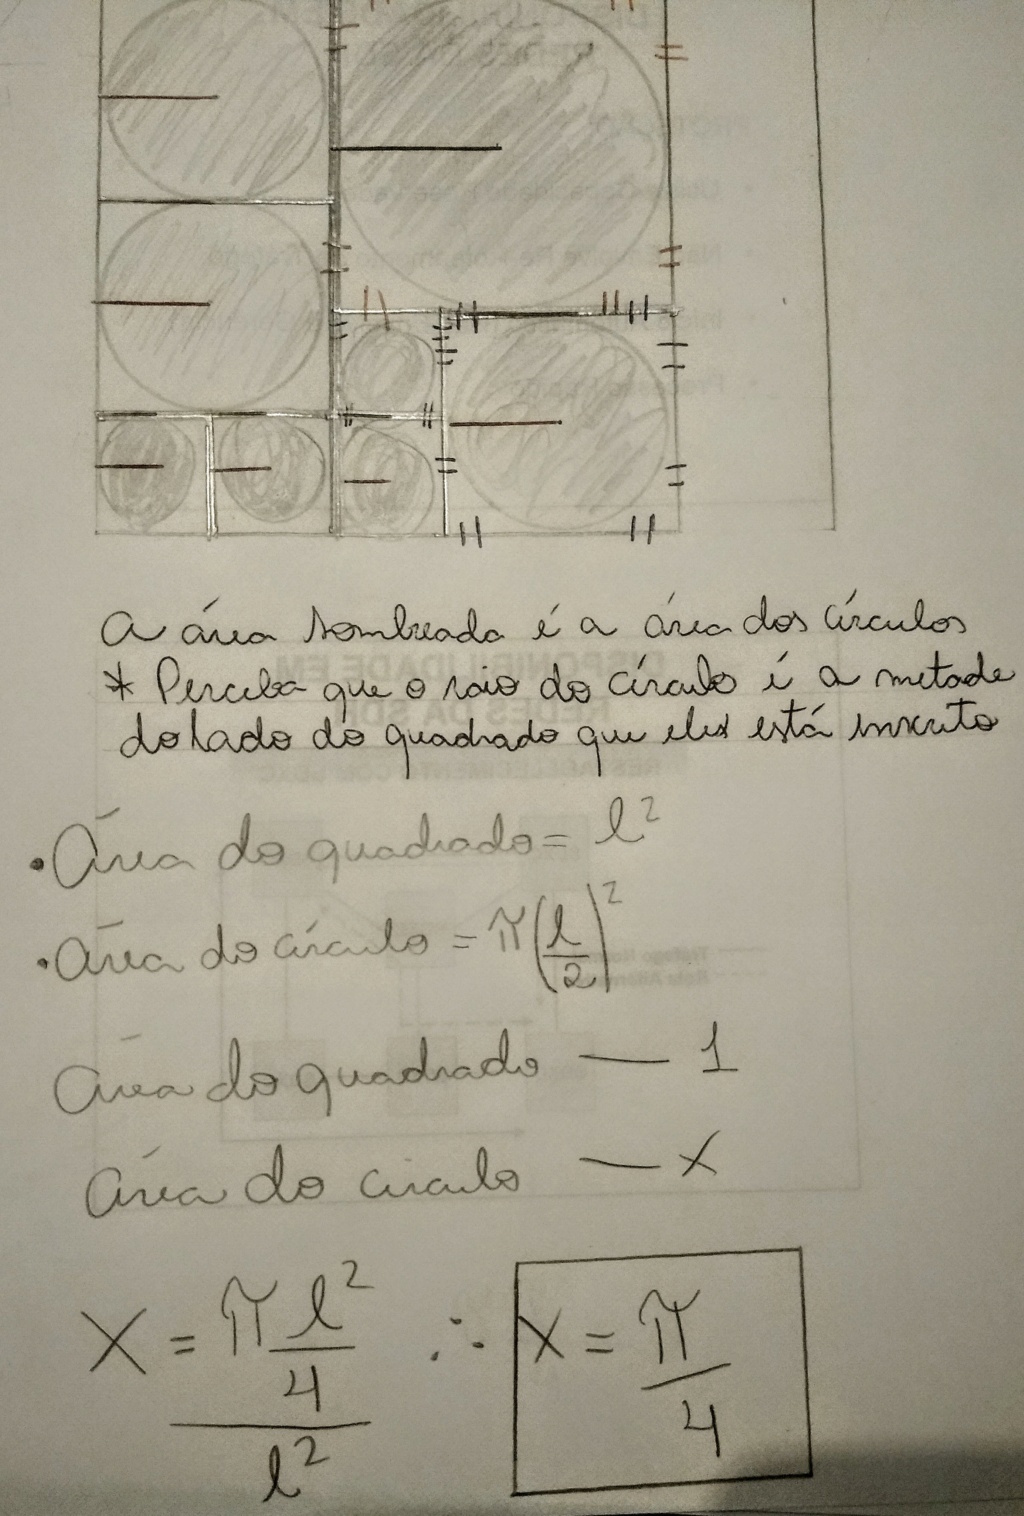 A área sombreada é a área dos círculos
* Perceba que o raio do círculo é a metade
do lado do quadrado que ele está inscrito
• Área do quadrado = l²
• Área do círculo = π(l/2)²
Área do quadrado — 1
Área do circulo — x
X = π l²/4 / l² ∴ X = π/4